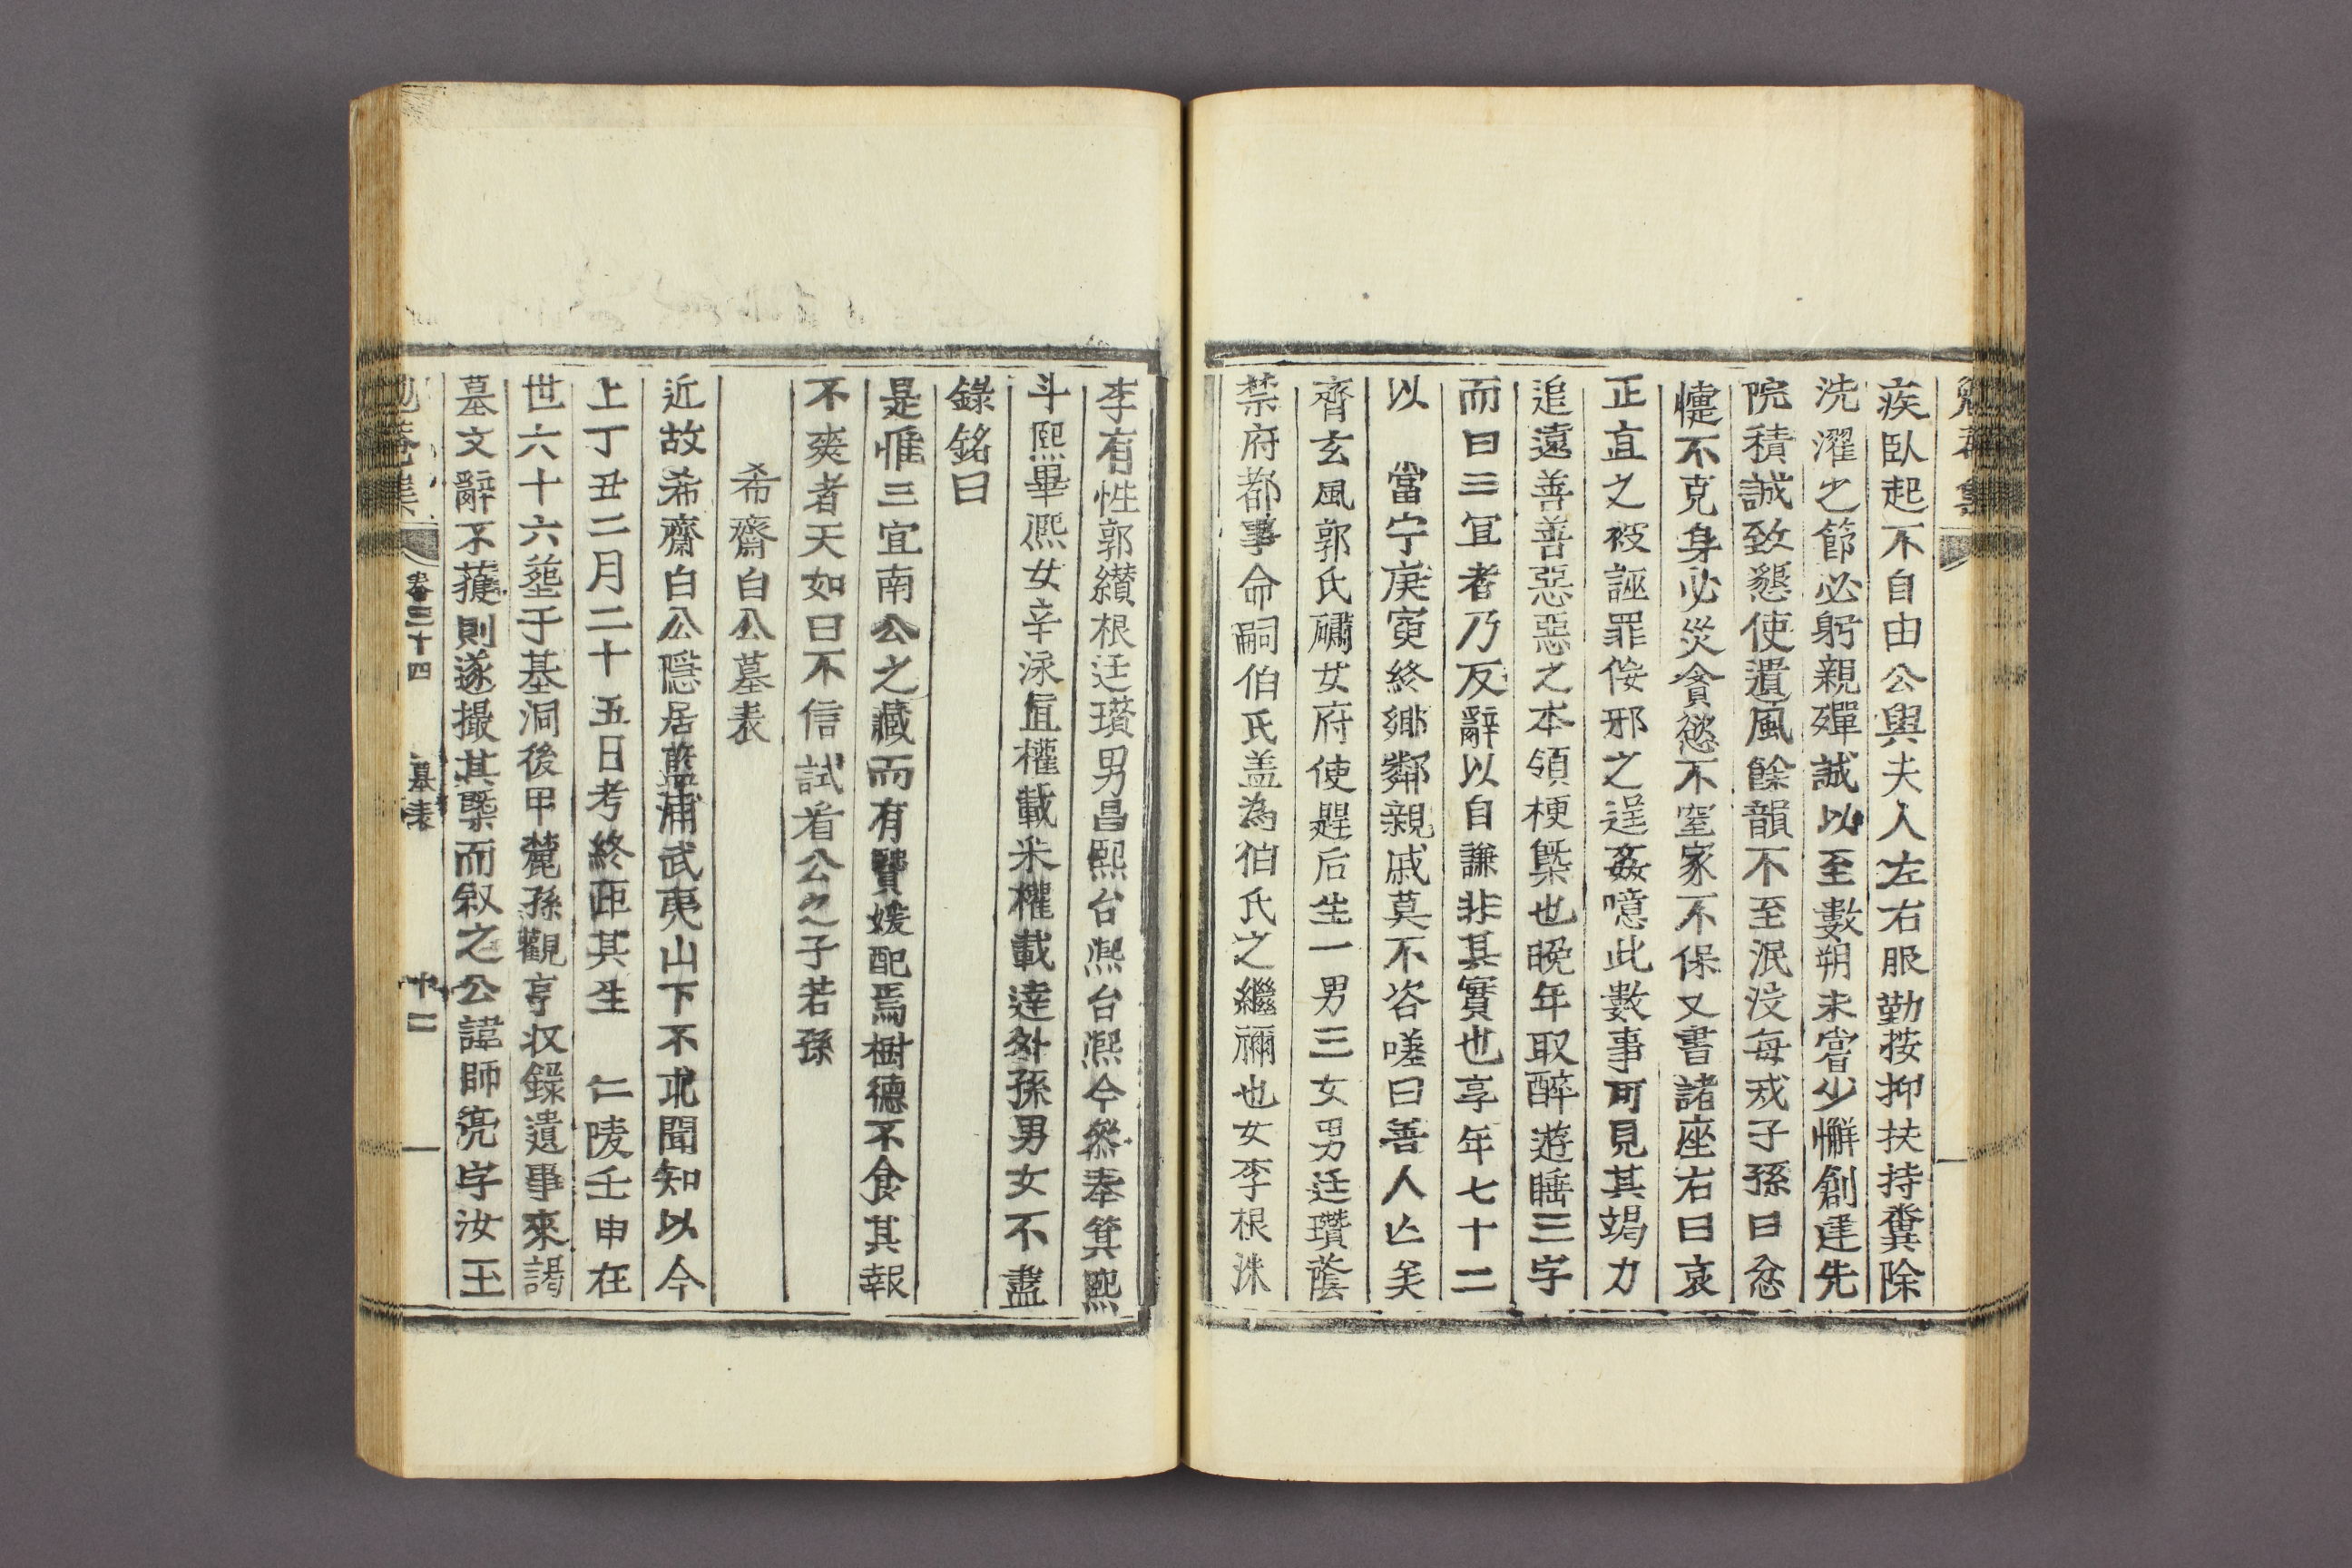 勉菴集
疾臥起不自由公與夫人左右服勤按抑扶持糞除
洗濯之節必躬親殫誠以至數朔未嘗少懈創建先
院積誠致懇使遺風餘韻不至泯沒每戒子孫曰忿
懥不克身必災貪慾不窒家不保又書諸座右曰哀
正直之被誣罪侫邪之逞姦噫此數事可見其竭力
追遠善善惡惡之本領梗槩也晩年取醉遊睡三字
而曰三冝者乃反辭以自謙非其實也享年七十二
以　當宁庚寅終鄉鄰親戚莫不咨嗟曰善人亡矣
齊玄風郭氏磻女府使趕后生一男三女男廷瓚蔭
禁府都事命嗣伯氏盖為伯氏之繼禰也女李根洙
李有性郭纘根廷瓚男昌熙台凞台凞今㷗奉箕熙
斗熙畢熈女辛泳直權載米權載達外孫男女不盡
錄銘曰
是惟三宜南公之藏而有賢媛配焉樹德不食其報
不爽者天如曰不信試看公之子若孫
希齋白公墓表
近故希齋白公隱居藍浦武夷山下不求聞知以今
上丁丑二月二十五日考終距其生　仁陵壬申在
世六十六塟于基洞後甲麓孫觀亨収錄遺事來謁
墓文辭不獲則遂撮其槩而叙之公諱師亮字汝玉
勉菴集　卷三十四　墓表　十二